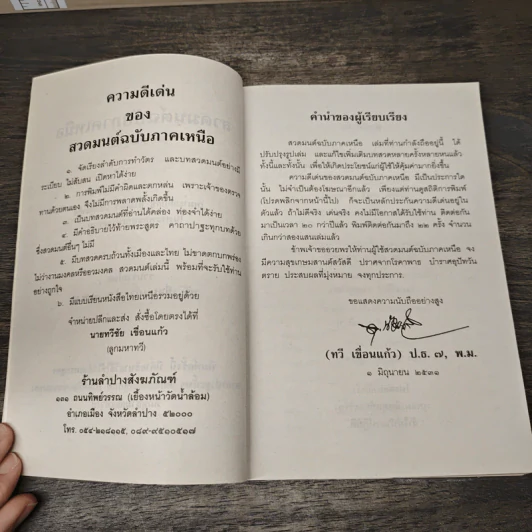 ความดีเด่น
ของ
สวดมนต์ฉบับภาคเหนือ
๑. จัดเรียงลำดับการทำวัตร และบทสวดมนต์อย่างมี
ระเบียบ ไม่สับสน เปิดหาได้ง่าย
๒. การพิมพ์ไม่มีคำผิดและตกหล่น เพราะเจ้าของตรวจ
ทานด้วยตนเอง จึงไม่มีการพลาดพลั้งเกิดขึ้น
๓. เป็นบทสวดมนต์ที่อ่านได้คล่อง ท่องจำได้ง่าย
๔. มีคำอธิบายไว้ท้ายพระสูตร คาถาปาฐะทุกบทด้วย
ซึ่งสวดมนต์อื่นๆ ไม่มี
๕. มีบทสวดครบถ้วนทั้งเมืองและไทย ไม่ขาดตกบกพร่อง
ไม่ว่างานมงคลหรืออวมงคล สวดมนต์เล่มนี้ พร้อมที่จะรับใช้ท่าน
อย่างถูกใจ
๖. มีแบบเรียนหนังสือไทยเหนือรวมอยู่ด้วย
จำหน่ายปลีกและส่ง สั่งซื้อโดยตรงได้ที่
นายทวีชัย เขื่อนแก้ว
(ลูกมหาทวี)
ร้านลำปางสังฆภัณฑ์
๑๓๑ ถนนทิพย์วรรณ (เยื้องหน้าวัดน้ำล้อม)
อำเภอเมือง จังหวัดลำปาง ๕๒๐๐๐
โทร. ๐๕๔-๒๑๘๑๑๕, ๐๘๙-๙๕๑๐๕๑๗
คำนำของผู้เรียบเรียง
สวดมนต์ฉบับภาคเหนือ เล่มที่ท่านกำลังถืออยู่นี้ ได้
ปรับปรุงรูปเล่ม และแก้ไขเพิ่มเติมบทสวดหลายครั้งหลายหนแล้ว
ทั้งนี้และทั้งนั้น เพื่อให้เกิดประโยชน์แก่ผู้ใช้คุ้มค่ามากยิ่งขึ้น
ความดีเด่นของสวดมนต์ฉบับภาคเหนือ มีเป็นประการใด
นั้น ไม่จำเป็นต้องโฆษณาอีกแล้ว เพียงแค่ท่านดูสถิติการพิมพ์
(โปรดพลิกจากหน้านี้ไป) ก็จะเป็นหลักประกันความดีเด่นอยู่ใน
ตัวแล้ว ถ้าไม่ดีจริง เด่นจริง คงไม่มีโอกาสได้รับใช้ท่าน ติดต่อกัน
มาเป็นเวลา ๒๐ กว่าปีแล้ว พิมพ์ติดต่อกันมาถึง ๒๒ ครั้ง จำนวน
เกินกว่าสองแสนเล่มแล้ว
ข้าพเจ้าขออวยพรให้ท่านผู้ใช้สวดมนต์ฉบับภาคเหนือ จง
มีความสุขเกษมสานต์สวัสดี ปราศจากโรคาพาธ บำราศอุปัทวัน
ตราย ประสบผลที่มุ่งหมาย จงทุกประการ.
ขอแสดงความนับถืออย่างสูง
(ทวี เขื่อนแก้ว) ป.ธ. ๗, พ.ม.
๑ มิถุนายน ๒๕๓๑